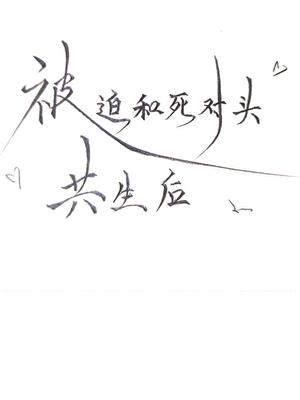 被迫和死对头
共生后